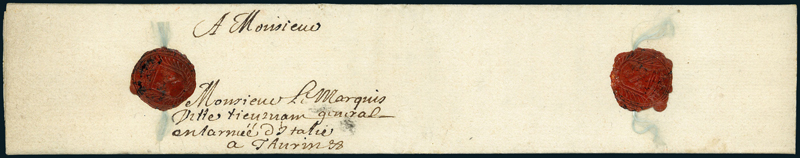 A Monsieur
Monsieur Le Marquis
Ville lieutnam general
en larmée d'Italie
a Thurin